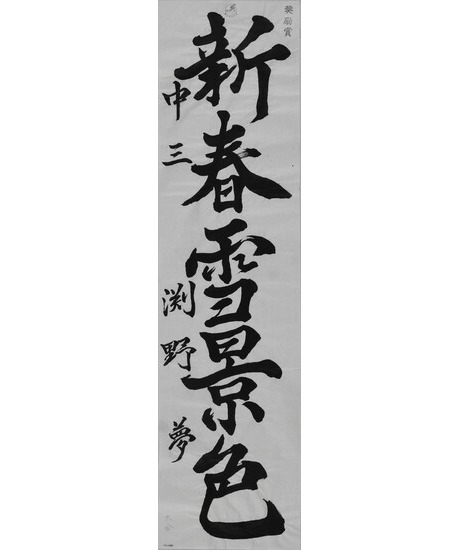 奨励賞
新春雪景色
中三 渕野 夢